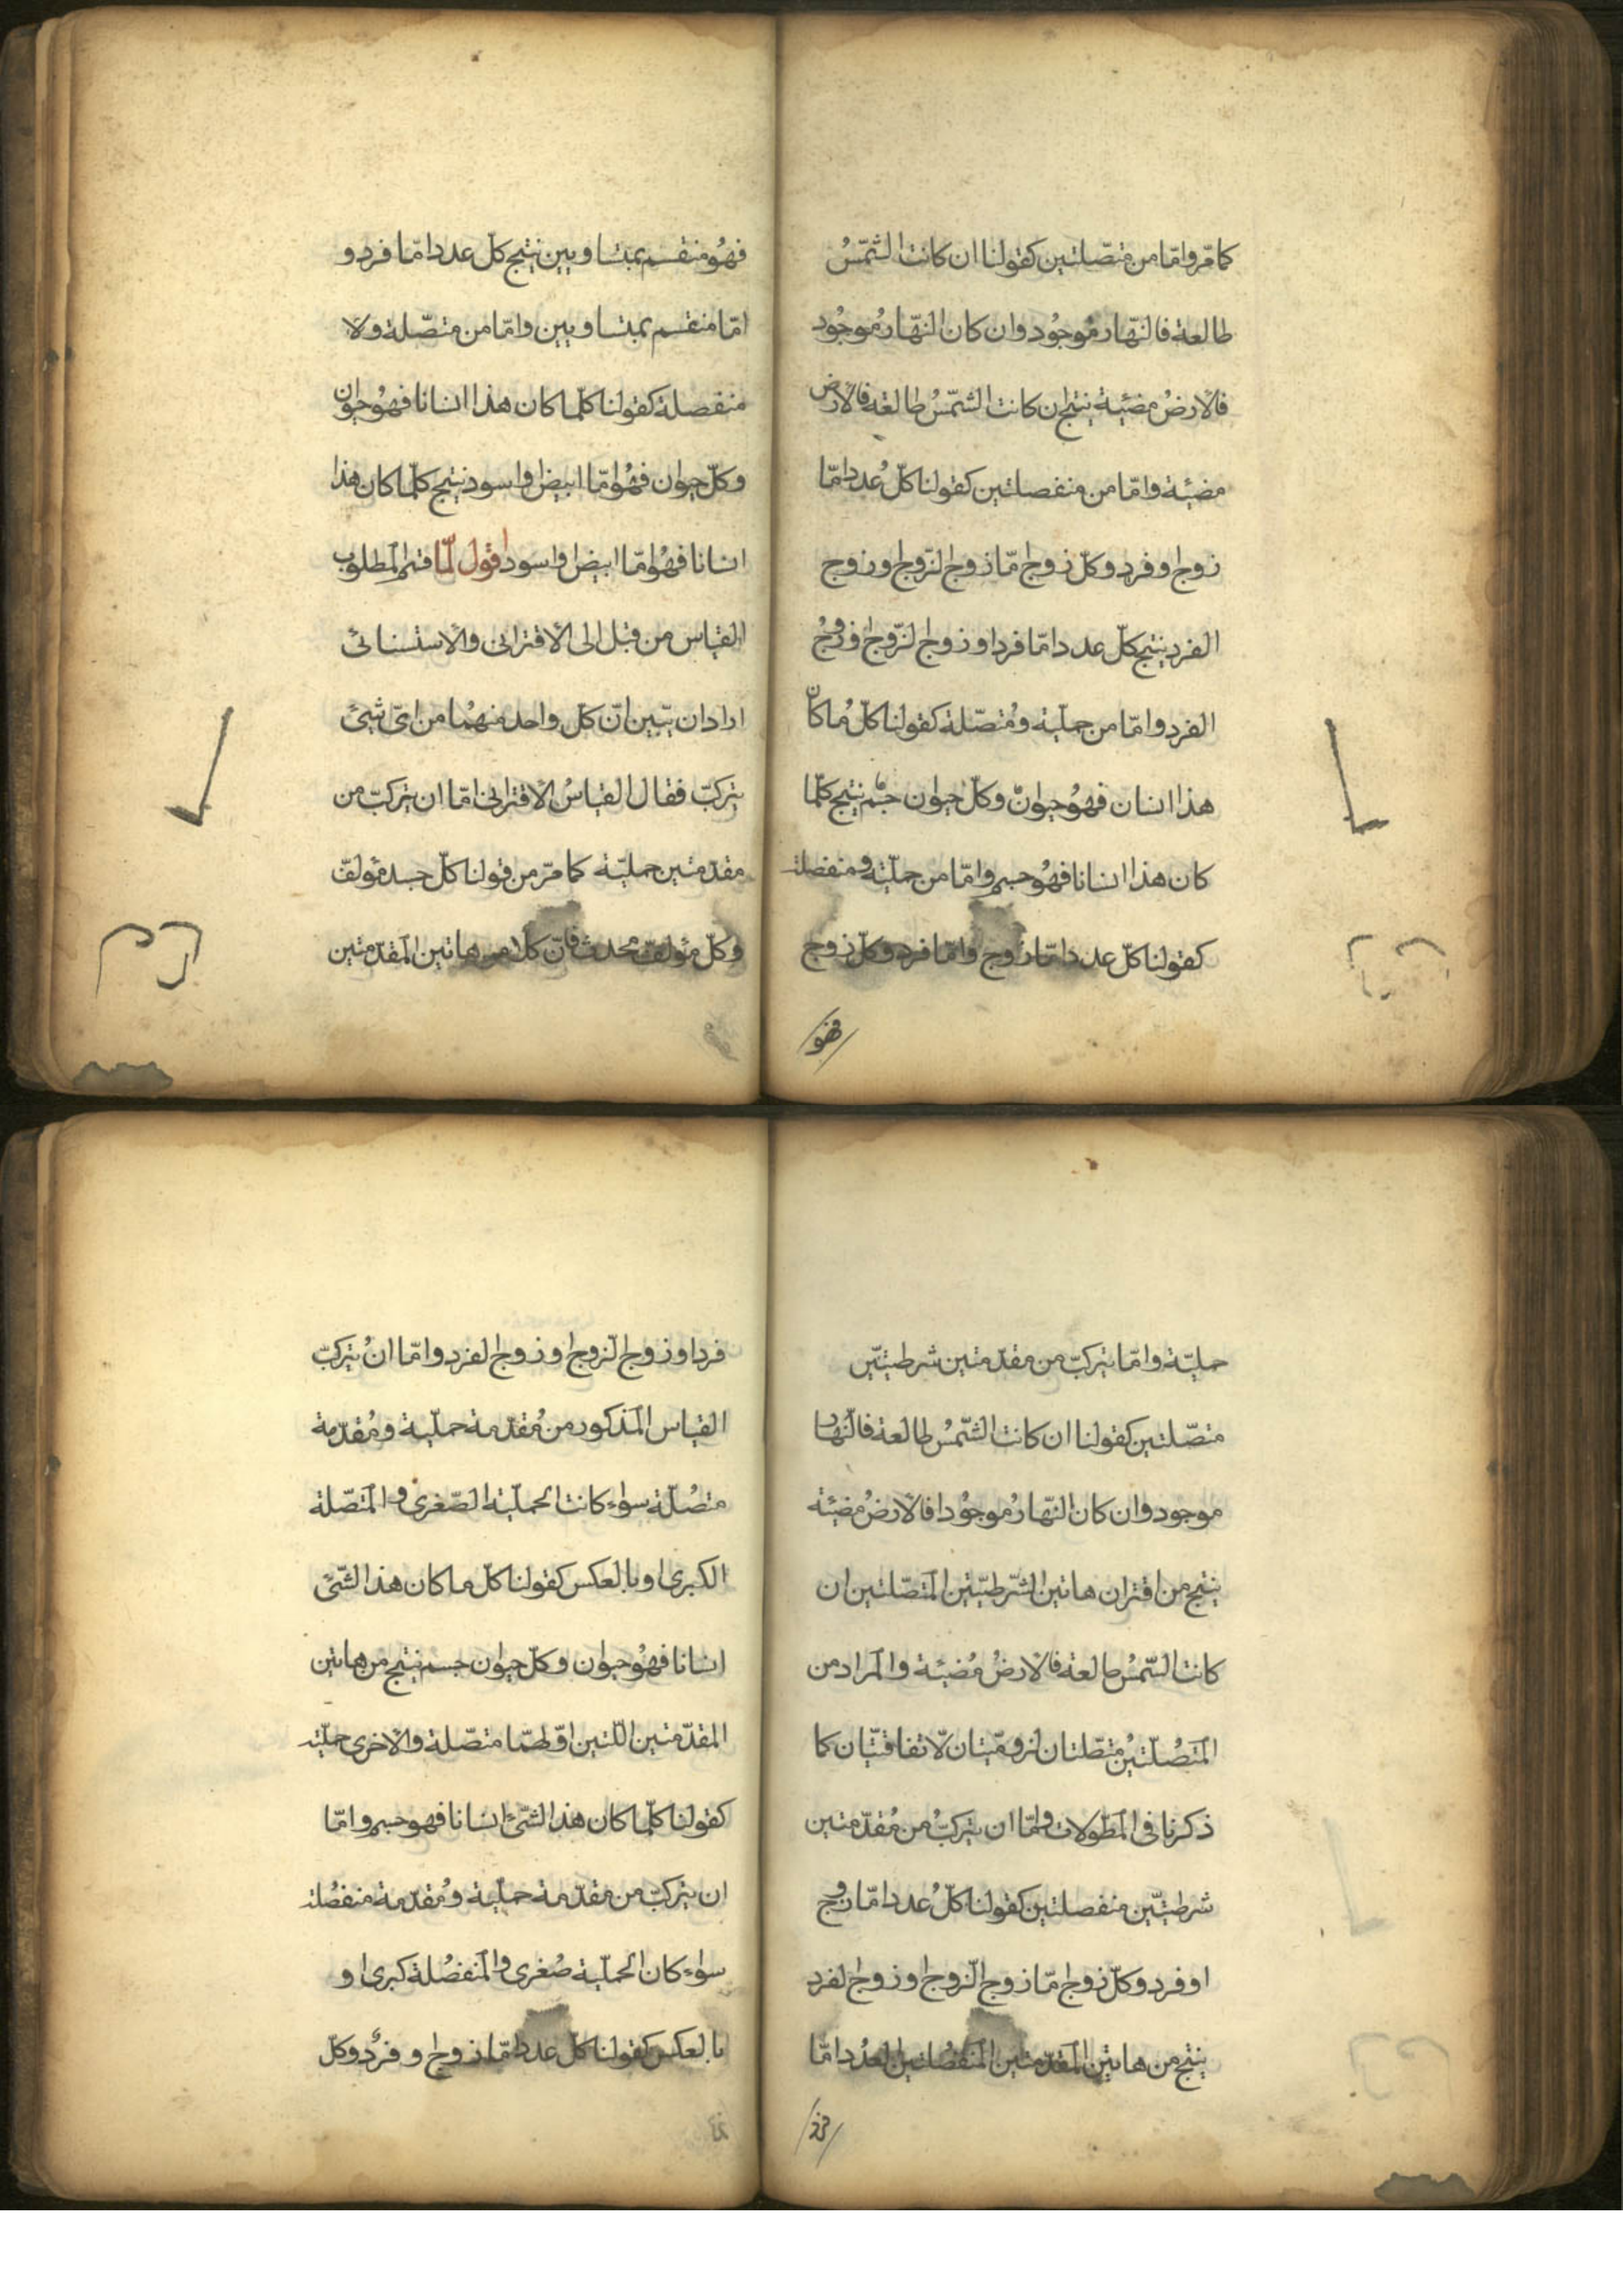 كما مرّ وامّا من متصّلتين كقولنا ان كانت الشّمسُ
طالعة فالنهّار مُوجُود وان كان النهّارُ مُوجُود
فالارضُ مضيئة ينتج ان كانت الشّمسُ طالعة فالارض
مضيئة وامّا من منفصلتين كقولنا كلّ عُدد امّا
زوج او فرد وكلّ زوج امّا زوج الزّوج او زوج
الفرد ينتج كلّ عدد امّا فرد او زوج الزّوج او زوجُ
الفرد وامّا من حمليّة ومُتصّلة كقولنا كلّ مُا كان
هذا انسان فهوُ حيوانٌ وكلّ حيوان جسْم ينتج كلّما
كان هذا انسانا فهوُ جسم وامّا من حمليّة ومنفصلة
كقولنا كلّ عدد امّا زوج وامّا فرد وكلّ زوج
فهو
فهُو منقسم بمتساويين ينتج كلّ عدد امّا فرد و
امّا منقسم بمتساويين وامّا من متصّلة ولا
منفصلة كقولنا كلّما كان هذا انسانا فهوُ حيوان
وكلّ حيوان فهُو امّا ابيض او اسود ينتج كلّما كان هذا
انسانا فهُو امّا ابيض او اسود اقول لمّا قسّم المطلوب
القياس من قبل الى الاقترانى والاستثنائى
اراد ان يبّين انّ كلّ واحد منهُما من اىّ شيئ
يتركبّ فقال القياسُ الاقترانى امّا ان يتركبّ من
مقدّمتين حمليّة كما مرّ من قولنا كلّ جسد مؤلّف
وكلّ مؤلفّ محدث فانّ كلا من هاتين المقدّمتين
حمليّة وامّا يتركبّ من مقدّمتين شرطيتيّن
متصّلتين كقولنا ان كانت الشّمسُ طالعة فالنّهار
موجود وان كان النهّارُ موجُودا فالارضُ مضيئة
ينتج من اقتران هاتين الشّرطيتّين المتصّلتين ان
كانت الشّمسُ طالعة فالارضُ مُضيئة والمراد من
المتصُلتين متصّلتان لزوميّتان لا تفاقتيّان كما
ذكرنا فى المطّولات وامّا ان يتركبُّ من مُقدّمتين
شرطيتيّن منفصلتين كقولنا كلّ عُدد امّا زوج
او فرد وكلّ زوج امّا زوج الزوج او زوج الفرد
ينتج من هاتين المقدّمتين المنفصُلتين العدُد امّا
فرد
فرد او زوج الزوج او زوج الفرد وامّا انْ يتركبّ
القياس المذكور من مُقدّمة حمليّة ومُقدّمة
متصُلّة سواء كانت الحمليّة الصّغرى والمتصّلة
الكبرى او بالعكس كقولنا كلّ ما كان هذا الشّئ
انسانا فهوُ حيوان وكلّ حيوان جسم ينتج من هاتين
المقدّمتين اللّتين اوّلهمّا متصّلة والاخرى حمليّة
كقولنا كلّما كان هذا الشّئ انسانا فهو جسم وامّا
ان يتركبّ من مقدّمة حمليّة ومُقدّمة منفصُلة
سواء كان الحمليّة صُغرى والمنفصُلة كبرى او
بالعكس كقولنا كلّ عدد امّا زوج و فرُد وكلّ